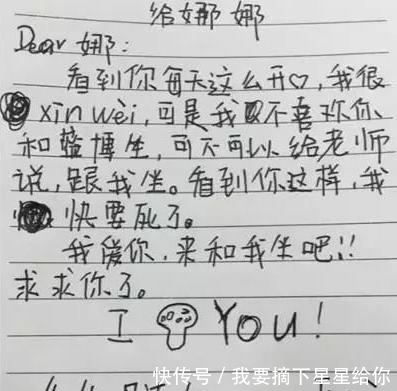 给娜娜
Dear 娜：
看到你每天这么开♡，我很
xin wèi，可是我不喜欢你
和蓝博生，可不可以给老师
说，跟我坐。看到你这样，我
快要死了。
我爱你，来和我坐吧!!
求求你了。
I You!
快传号/我要摘下星星给你